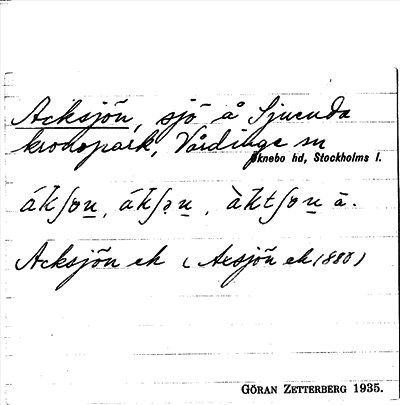 Acksjön, sjö å Sjuenda
kronopark, Vårdinge sn
Øknebo hd, Stockholms l.
áksɷn, áksən, àktsɷn ā.
Acksjön ek (Axsjön ek 1880)
GÖRAN ZETTERBERG 1935.